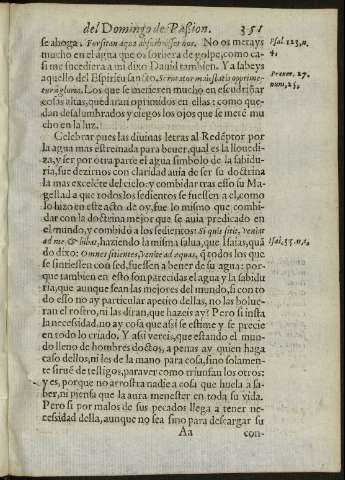 del Domingo de Passion. 351
se ahoga: Forsitan aqua absorbuisset nos. No os metays
mucho en el agua que os sorbera de golpe, como ca-
si me sucediera a mi dixo Dauid tambien. Ya sabeys
aquello del Espiritu santo. Scrutator maiestatis opprime-
tur à gloria. Los que se metieren mucho en escudriñar
cosas altas, quedaran oprimidos en ellas: como que-
dan deslumbrados y ciegos los ojos que se meté mu
cho en la luz.
Celebrar pues las diuinas letras al Redéptor por
la agua mas estremada para beuer, qual es la llouedi-
za, y ser por otra parte el agua simbolo de la sabidu-
ria, fue dezirnos con claridad auia de ser su doctrina
la mas excelére del cielo: y combidar tras esso su Ma-
gestad a que todos los sedientos se fuessen a el, como
lo hizo en este acto de oy, fue lo mismo que combi-
dar con la doctrina mejor que se auia predicado en
el mundo, y combidó a los sedientos: Si quis sitit, veniat
ad me & bibat, haziendo la misma salua, que Isaias, quã
do dixo: Omnes sitientes, venite ad aquas, q̃ todos los que
se sintiessen con sed, fuessen a beuer de su agua: por-
que tambien en esto son parecidas el agua y la sabidu
ria, que aunque sean las mejores del mundo, si con to
do esso no ay particular apetito dellas, no las bolue-
ran el rostro, ni las diran, que hazeis ay? Pero si insta
la necessidad, no ay cosa que assi se estime y se precie
en todo lo criado. Y assi vereis, que estando el mun-
do lleno de hombres doctos, a penas ay quien haga
caso dellos, ni les de la mano para cosa, sino solamen-
te sirué de testigos, para ver como triunfan los otros:
y es, porque no arrostra nadie a cosa que huela a sa-
ber, ni piensa que la aura menester en toda su vida.
Pero si por malos de sus pecados llega a tener ne-
cessidad della, aunque no sea sino para descargar su
Aa con-
Psal. 123. n.
4.
Prouer. 27.
num. 25.
Isai. 55. n. 1.